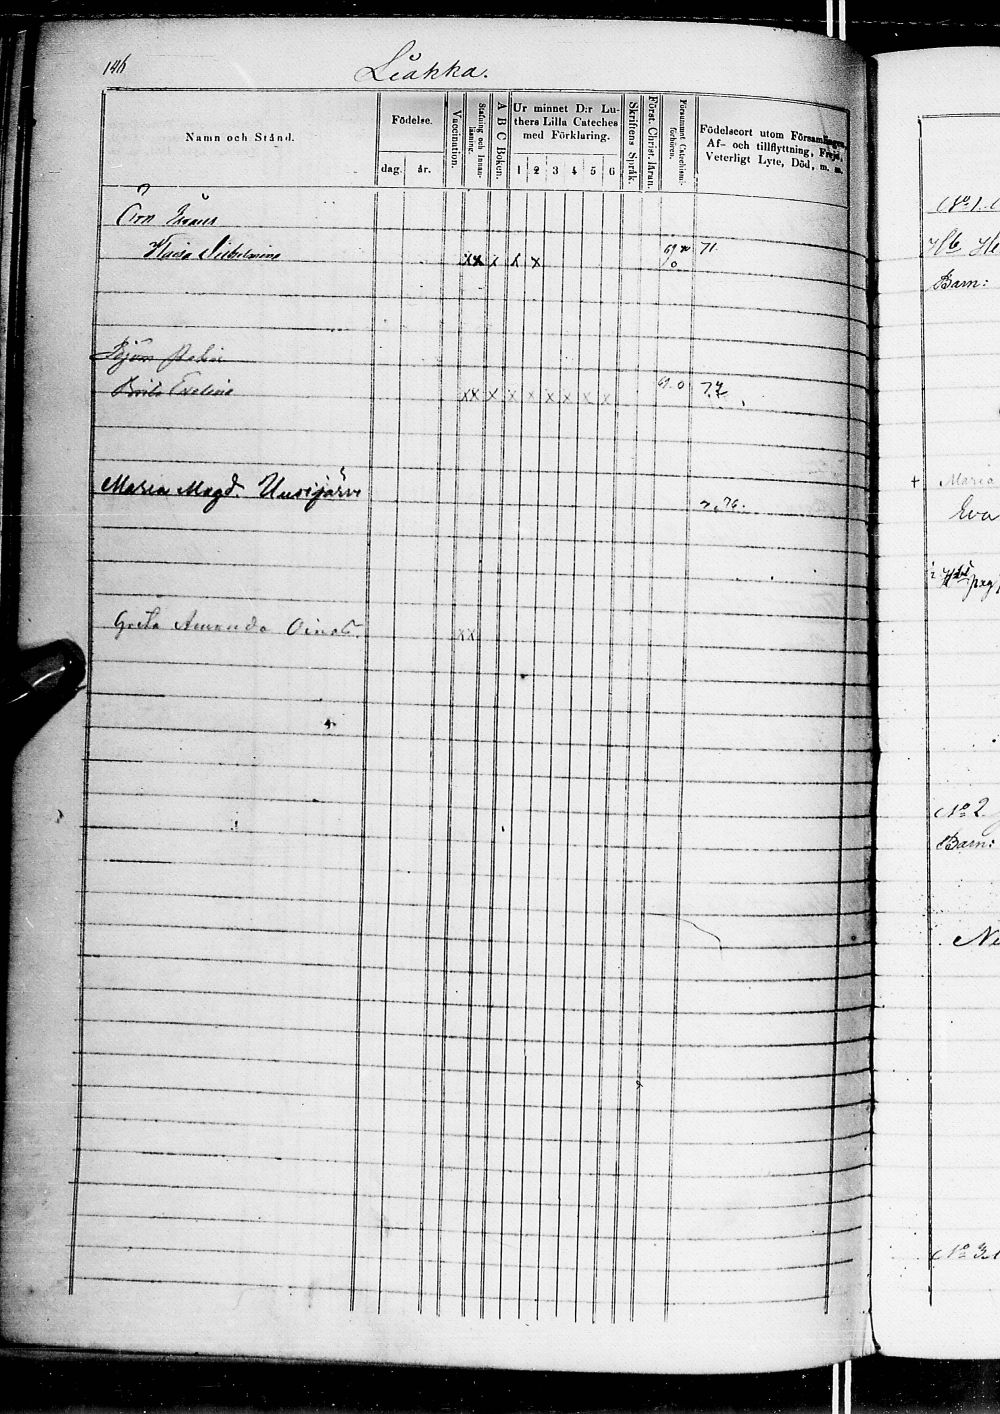 146
Liakka.
Namn och Stånd.
Födelse.
dag.
år.
Vaccination.
Stafning och Innan-läsning.
A B C Boken.
Ur minnet D:r Lu-
thers Lilla Cateches
med Förklaring.
1 2 3 4 5 6
Skriftens Språk.
Först. Christ. läran.
Försummat Catechismi-förhören.
Födelseort utom Församlingen,
Af- och tillflyttning, Frejd,
Veterligt Lyte, Död, m. m.
xx x x x 71.
Brita Evelina xx x x x x x x x
Maria Magd. Uusijärvi
76.
Greta Amanda xx
No 1.
Barn:
+ Maria
Eva
No 2.
Barn:
No 3.